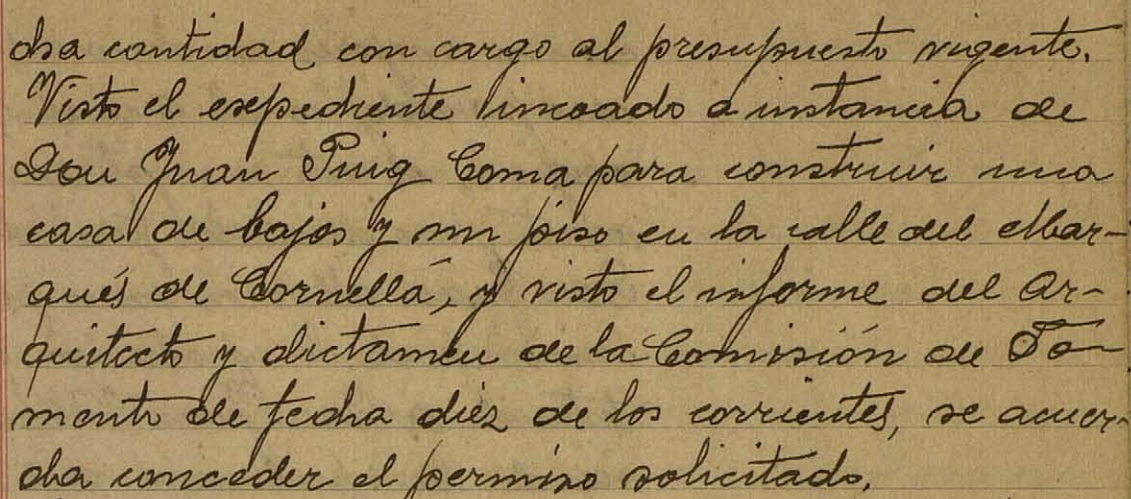 cha cantidad con cargo al presupuesto vigente.
Visto el expediente incoado a instancia de
Don Juan Puig Coma para construir una
casa de bajos y un piso en la calle del Mar-
qués de Cornellá, y visto el informe del Ar-
quitecto y dictamen de la Comisión de Fo-
mento de fecha diez de los corrientes, se acuer-
da conceder el permiso solicitado.